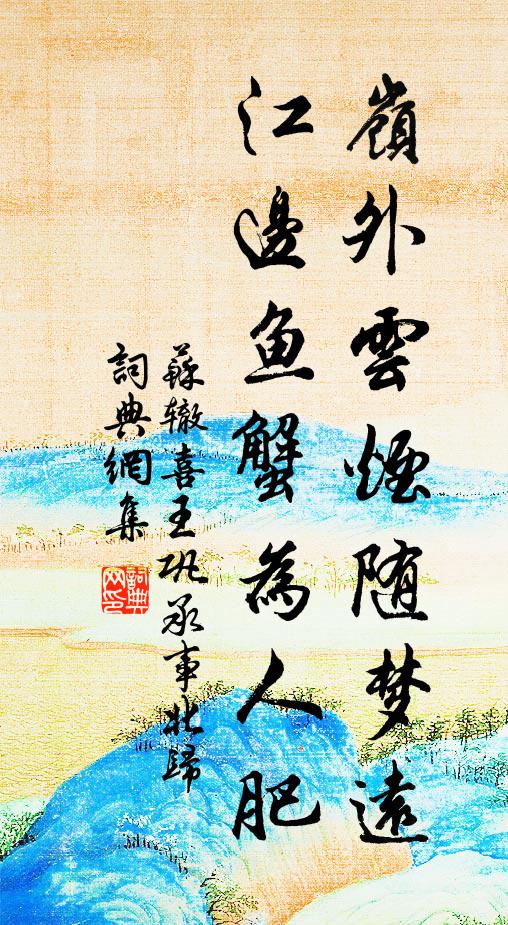 嶺外雲煙随梦遠
江邊魚蟹為人肥
蘇辙喜王巩承事北歸
詞典網集
詞典網印